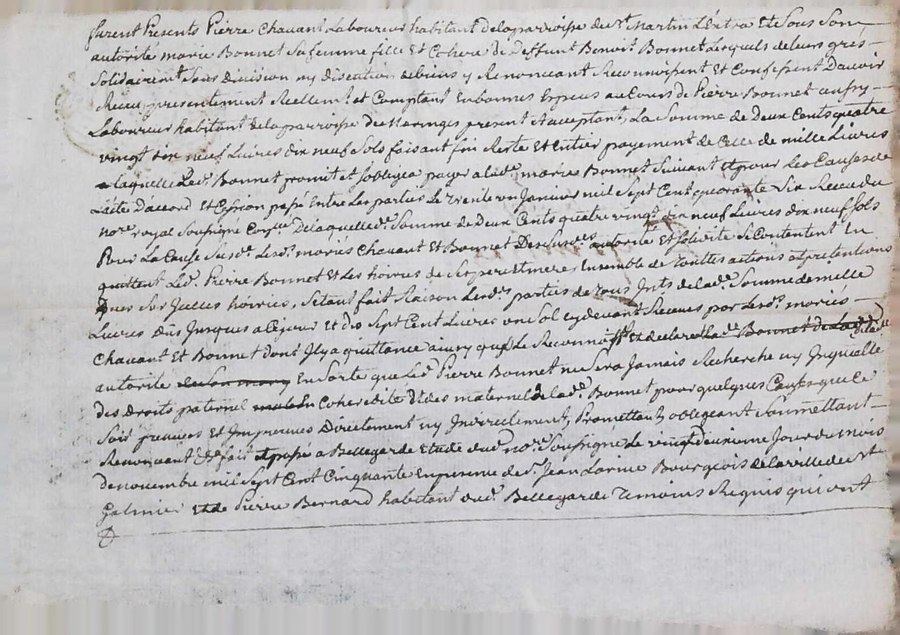 furent Presents Pierre Chavant Laboureur habitant delaparroisse de st Martin Lextra Et Sous Son
autorité marie Bonnet Sa femme fille Et Cohere de deffunt Benoit Bonnet Lesquels de leurs grés
Solidairemt Sans division ny discution debiens y Renoncant Reconnoissent Et Confessent Davoir
Recu presentement Reellemt et Comptant En bonnes Especes au Cours de Pierre Bonnet aussy
Laboureur habitant delaparroisse de Maringes present acceptant, La Somme de Deux Cents quatre
vingt dix neuf Livres dix neuf Sols faisant fin Reste et Entier payement de Celle de mille Livres
a laquelle Led. Bonnet promit et soblegea payer alade. marie Bonnet Suivant et pour les Causes de
Lacte Daccord Et Cession passé Entre Les parties Le trente un Janvier mil Sept Cent quarante Six Recu du
nore. royal Soussigné De laquelle de. Somme de Deux Cents quatre vingt dix neuf Livres dix neuf Sols
Pour La Cause Susde. Lesd. mariés Chavant Et Bonnet autorité Et Se Contentent En
quittent Led. Pierre Bonnet Et Les hoirres de Ses pere Et mere, Ensemble de touttes actions et pretentions
Sur Sesquelles hoirries, Setant fait Raison Lesd. parties de tous Jnts. de lade. Somme de mille
Livres dus Jusques a Cejour Et des Sept Cent Livres un Sol cy devant Receues par Lesd. mariés
Chavant Et Bonnet dont Jl y a quittance ainsy quils Le Reconnoissent Et declare lade. Bonnet de Lad.
autorité En Sorte que Led. Pierre Bonnet ne Sera Jamais Recherché ny Jnquietté
des Droits paternel Coheredité Et des maternel de lade. Bonnet pour quelques Causes que Ce
Soit preveues Et Jmpreveues Directement ny Jndirectement, Promettant, oblegeant Soumettant
Renoncant &c fait Et passé a Bellegarde Etude dud. nore. Soussigné Le vingt deuxieme Jour du mois
de novembre mil Sept Cent Cinquante En presence de Sr. Jean Bourgeois de la ville de st
Galmier Et de Pierre Bernard habitant dud. Bellegarde Temoins Requis qui ont